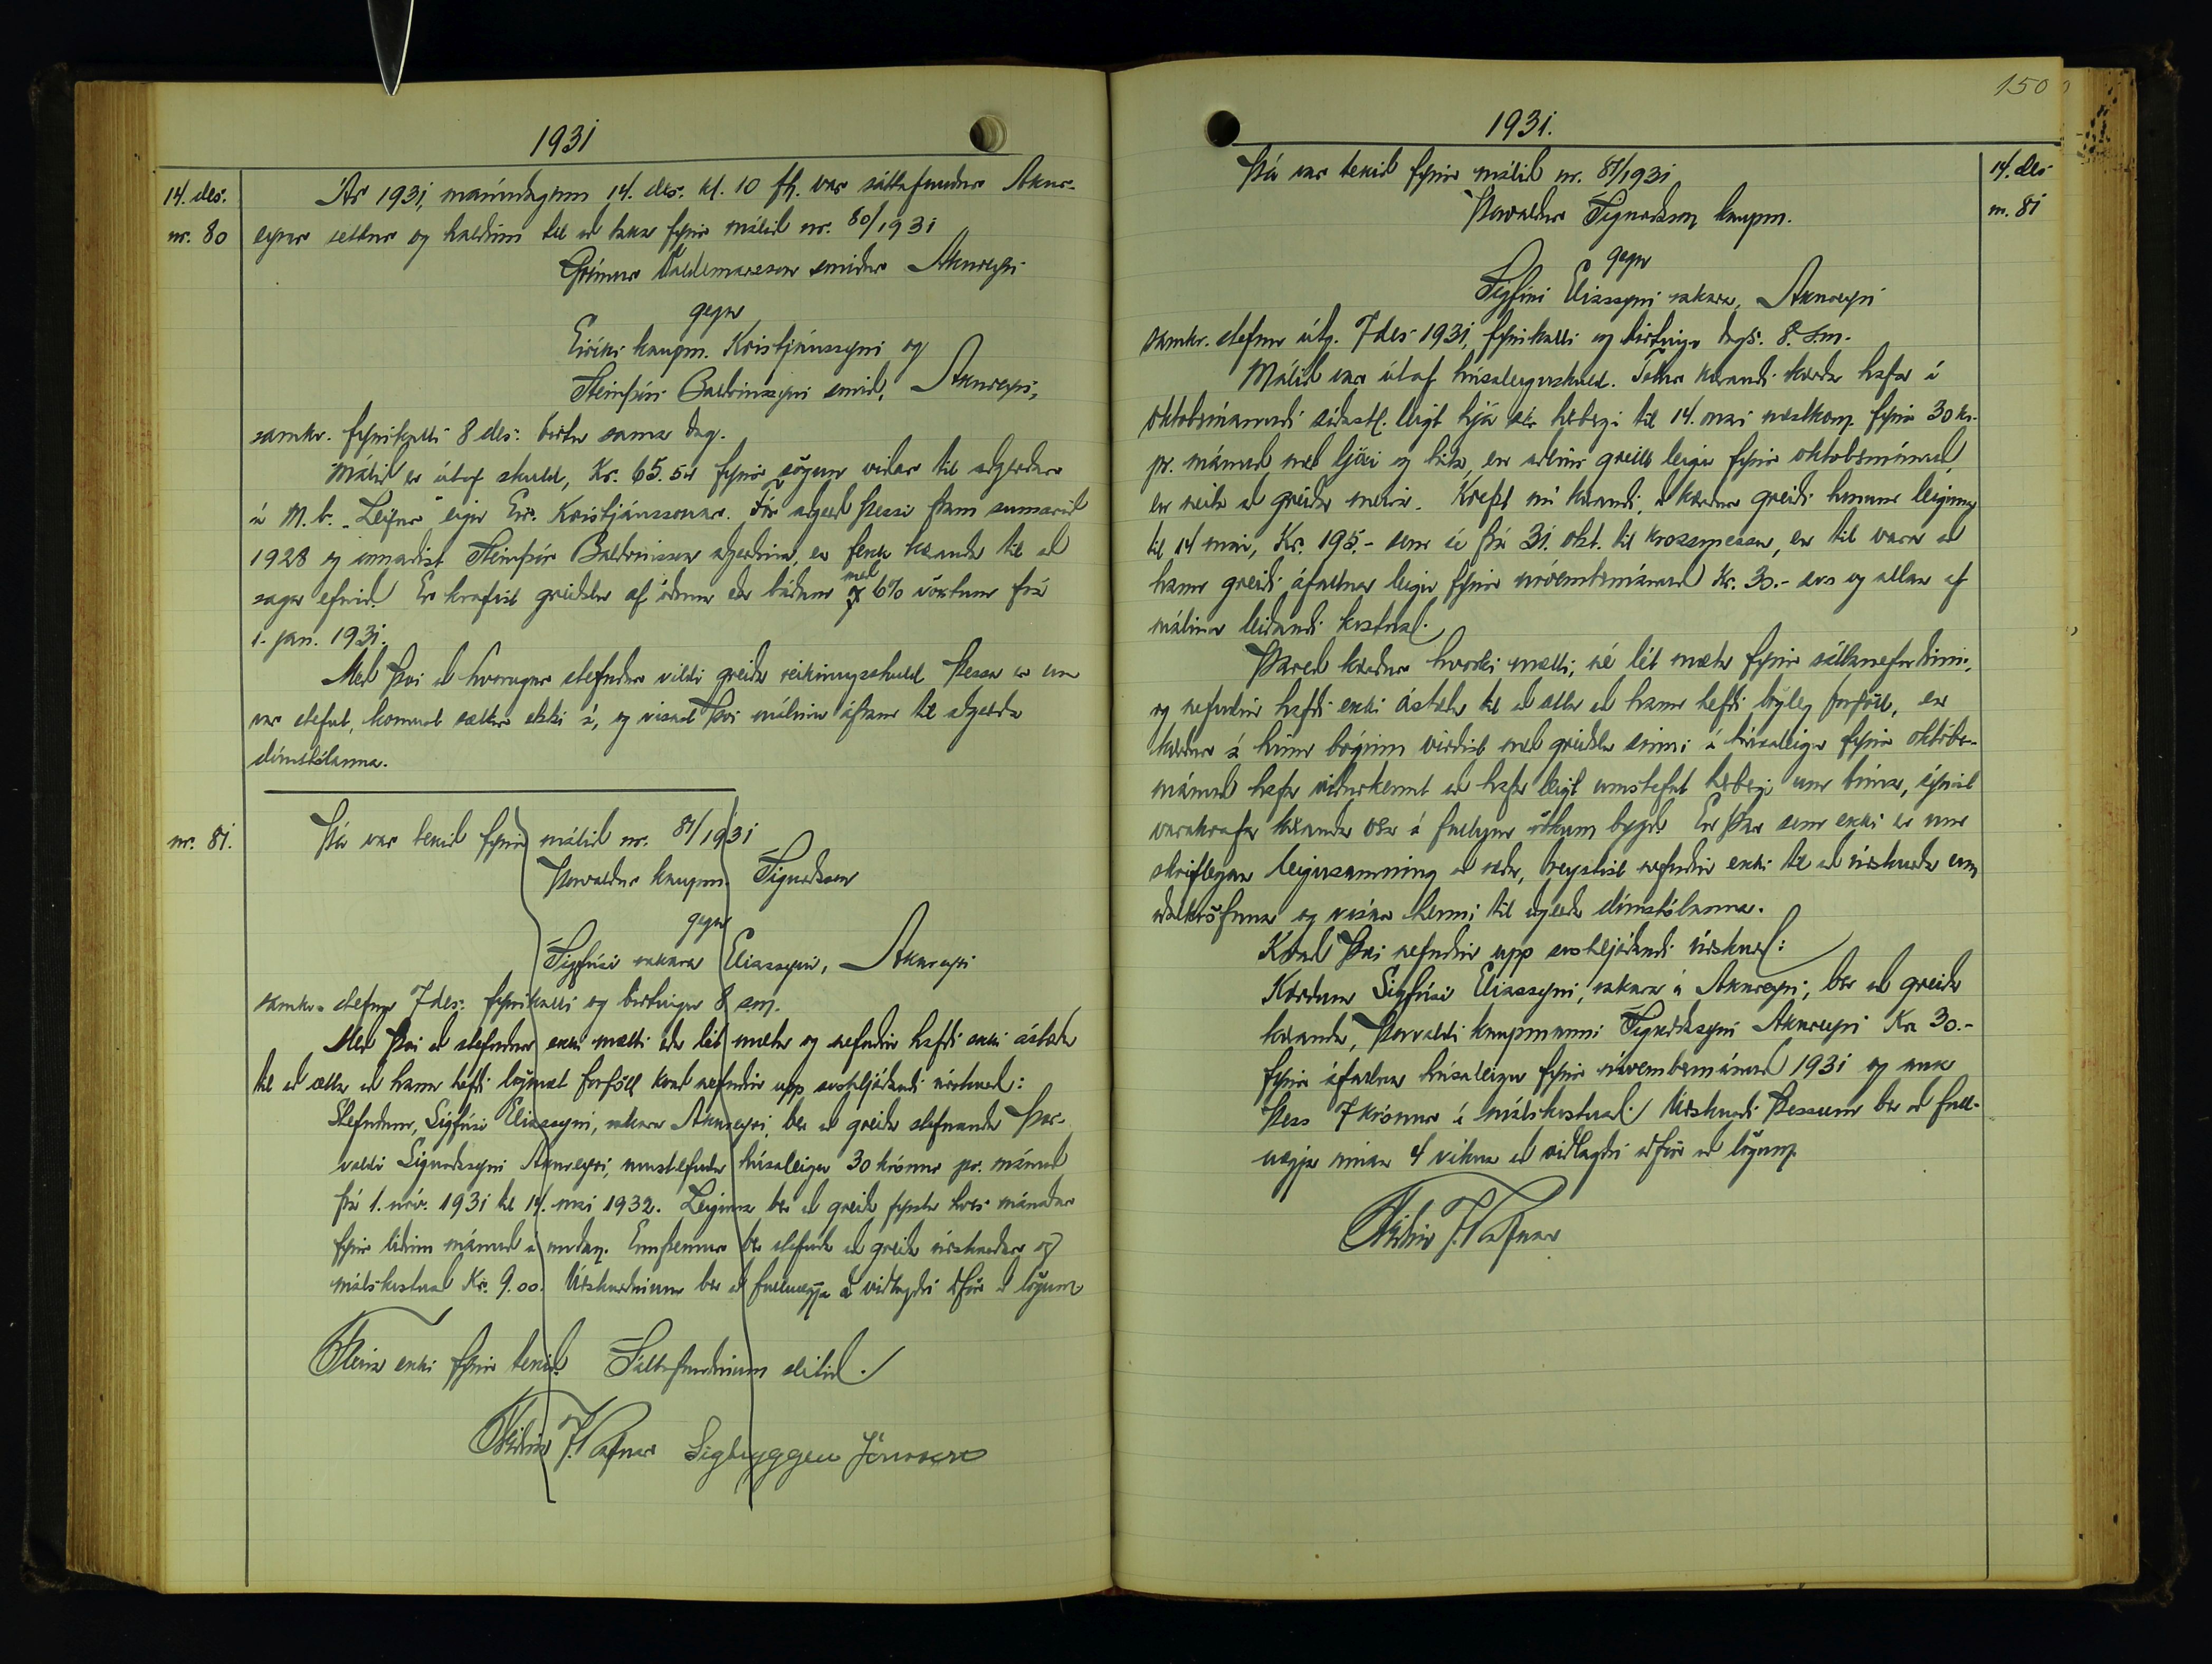 1931
14. des.
nr. 80
Ár 1931, mánudaginn 14. des. kl. 10 fh. var sáttafundur Akur-
eyrar settur og haldinn til að taka fyrir málið nr. 80/1931
Grímur Valdemarsson smiður Akureyri
gegn
Eiríki kaupm. Kristjánssyni og
Steinþóri Baldvinssyni smið, Akureyri,
samkv. fyrirkalli 8 des. birtu sama dag.
Málið er útaf skuld, Kr. 65.50 fyrir sögun viðar til aðgerðar
á M.b. "Leifur" eign Eir. Kristjánssonar. Fór aðgerð þessi fram sumarið
1928 og annaðist Steinþór Baldvinsson aðgerðina, en fekk kæranda til að
saga efnið. Er krafist greiðslu af öðrum eða báðum með 6% vöxtum frá
1. jan. 1931.
Með því að hvorugur stefndur vildi greiða reikningsskuld þessa er um
var stefnt, komust sættir ekki á, og vísast því málinu áfram til aðgerða
dómstólanna.
nr. 81.
Þá var tekið fyrir málið nr. 81/1931
Þorvaldur kaupm. Sigurðsson
gegn
Sigfúsi rakara Elíassyni, Akureyri
samkv. stefnu 7 des. fyrirkalli og birtingu 8 s.m.
Með því að stefndur ekki mætti eða lét mæta og nefndin hafði ekki ástæðu
til að ætla að hann hefði lögmæt forföll kvað nefndin upp svohljóðandi úrskurð:
Stefndum, Sigfúsi Elíassyni, rakara Akureyri, ber að greiða stefnanda Þor-
valdi Sigurðssyni Akureyri, umstefnda húsaleigu 30 krónur pr. mánuð
frá 1. nóv. 1931 til 14. maí 1932. Leiguna ber að greiða fyrsta hvers mánaðar
fyrir liðinn mánuð á undan. Ennfremur ber stefnda að greiða úrskurðar og
málskostnað Kr. 9.00. Úrskurðinum ber að fullnægja að viðlagðri aðför að lögum
Fleira ekki fyrir tekið. Sáttafundinum slitið.
Friðrik J. Rafnar Sigtryggur Jónsson
150
1931.
14. des
nr. 81
Þá var tekið fyrir málið nr. 81/1931
Þorvaldur Sigurðsson kaupm.
gegn
Sigfúsi Elíassyni rakara, Akureyri
samkv. stefnu útg. 7 des 1931, fyrirkalli og birtingu dags. 8. s.m.
Málið var útaf húsaleiguskuld. Telur kærandi kærða hafa í
októbermánuði síðastl. leigt hjá sér herbergi til 14. maí næstkom. fyrir 30 kr.
pr. mánuð með ljósi og hita, en aðeins greitt leigu fyrir októbermánuð,
en neita að greiða meira. Krefst nú kærandi, að kærður greiði honum leiguna
til 14 maí, Kr. 195.- sem sé frá 31. okt. til krossmessu, en til vara að
hann greiði áfallna leigu fyrir nóvembermánuð Kr. 30.- svo og allan af
málinu leiðandi kostnað.
Þareð kærður hvorki mætti, né lét mæta fyrir sáttanefndinni,
og nefndin hafði ekki ástæðu til að ætla að hann hefði lögleg forföll, en
kærður á hinn bóginn virðist með greiðslu sinni á húsaleigu fyrir október-
mánuð hafa viðurkennt að hafa leigt umstefnt herbergi um tíma, sýnist
varakrafa kæranda vera á fullgum rökum bygð. En þar sem ekki er um
skriflegan leigusamning að ræða, treystist nefndin ekki til að úrskurða um
aðalkröfuna og vísar henni til aðgerða dómstólanna.
Kvað því nefndin upp svohljóðandi úrskurð:
Kærðum Sigfúsi Elíassyni, rakara á Akureyri, ber að greiða
kæranda, Þorvaldi kaupmanni Sigurðssyni Akureyri Kr. 30.-
fyrir áfallna húsaleigu fyrir nóvembermánuð 1931 og auk
þess 7 krónur í málskostnað. Úrskurði þessum ber að full-
nægja innan 4 vikna að viðlagðri aðför að lögum.
Friðrik J. Rafnar